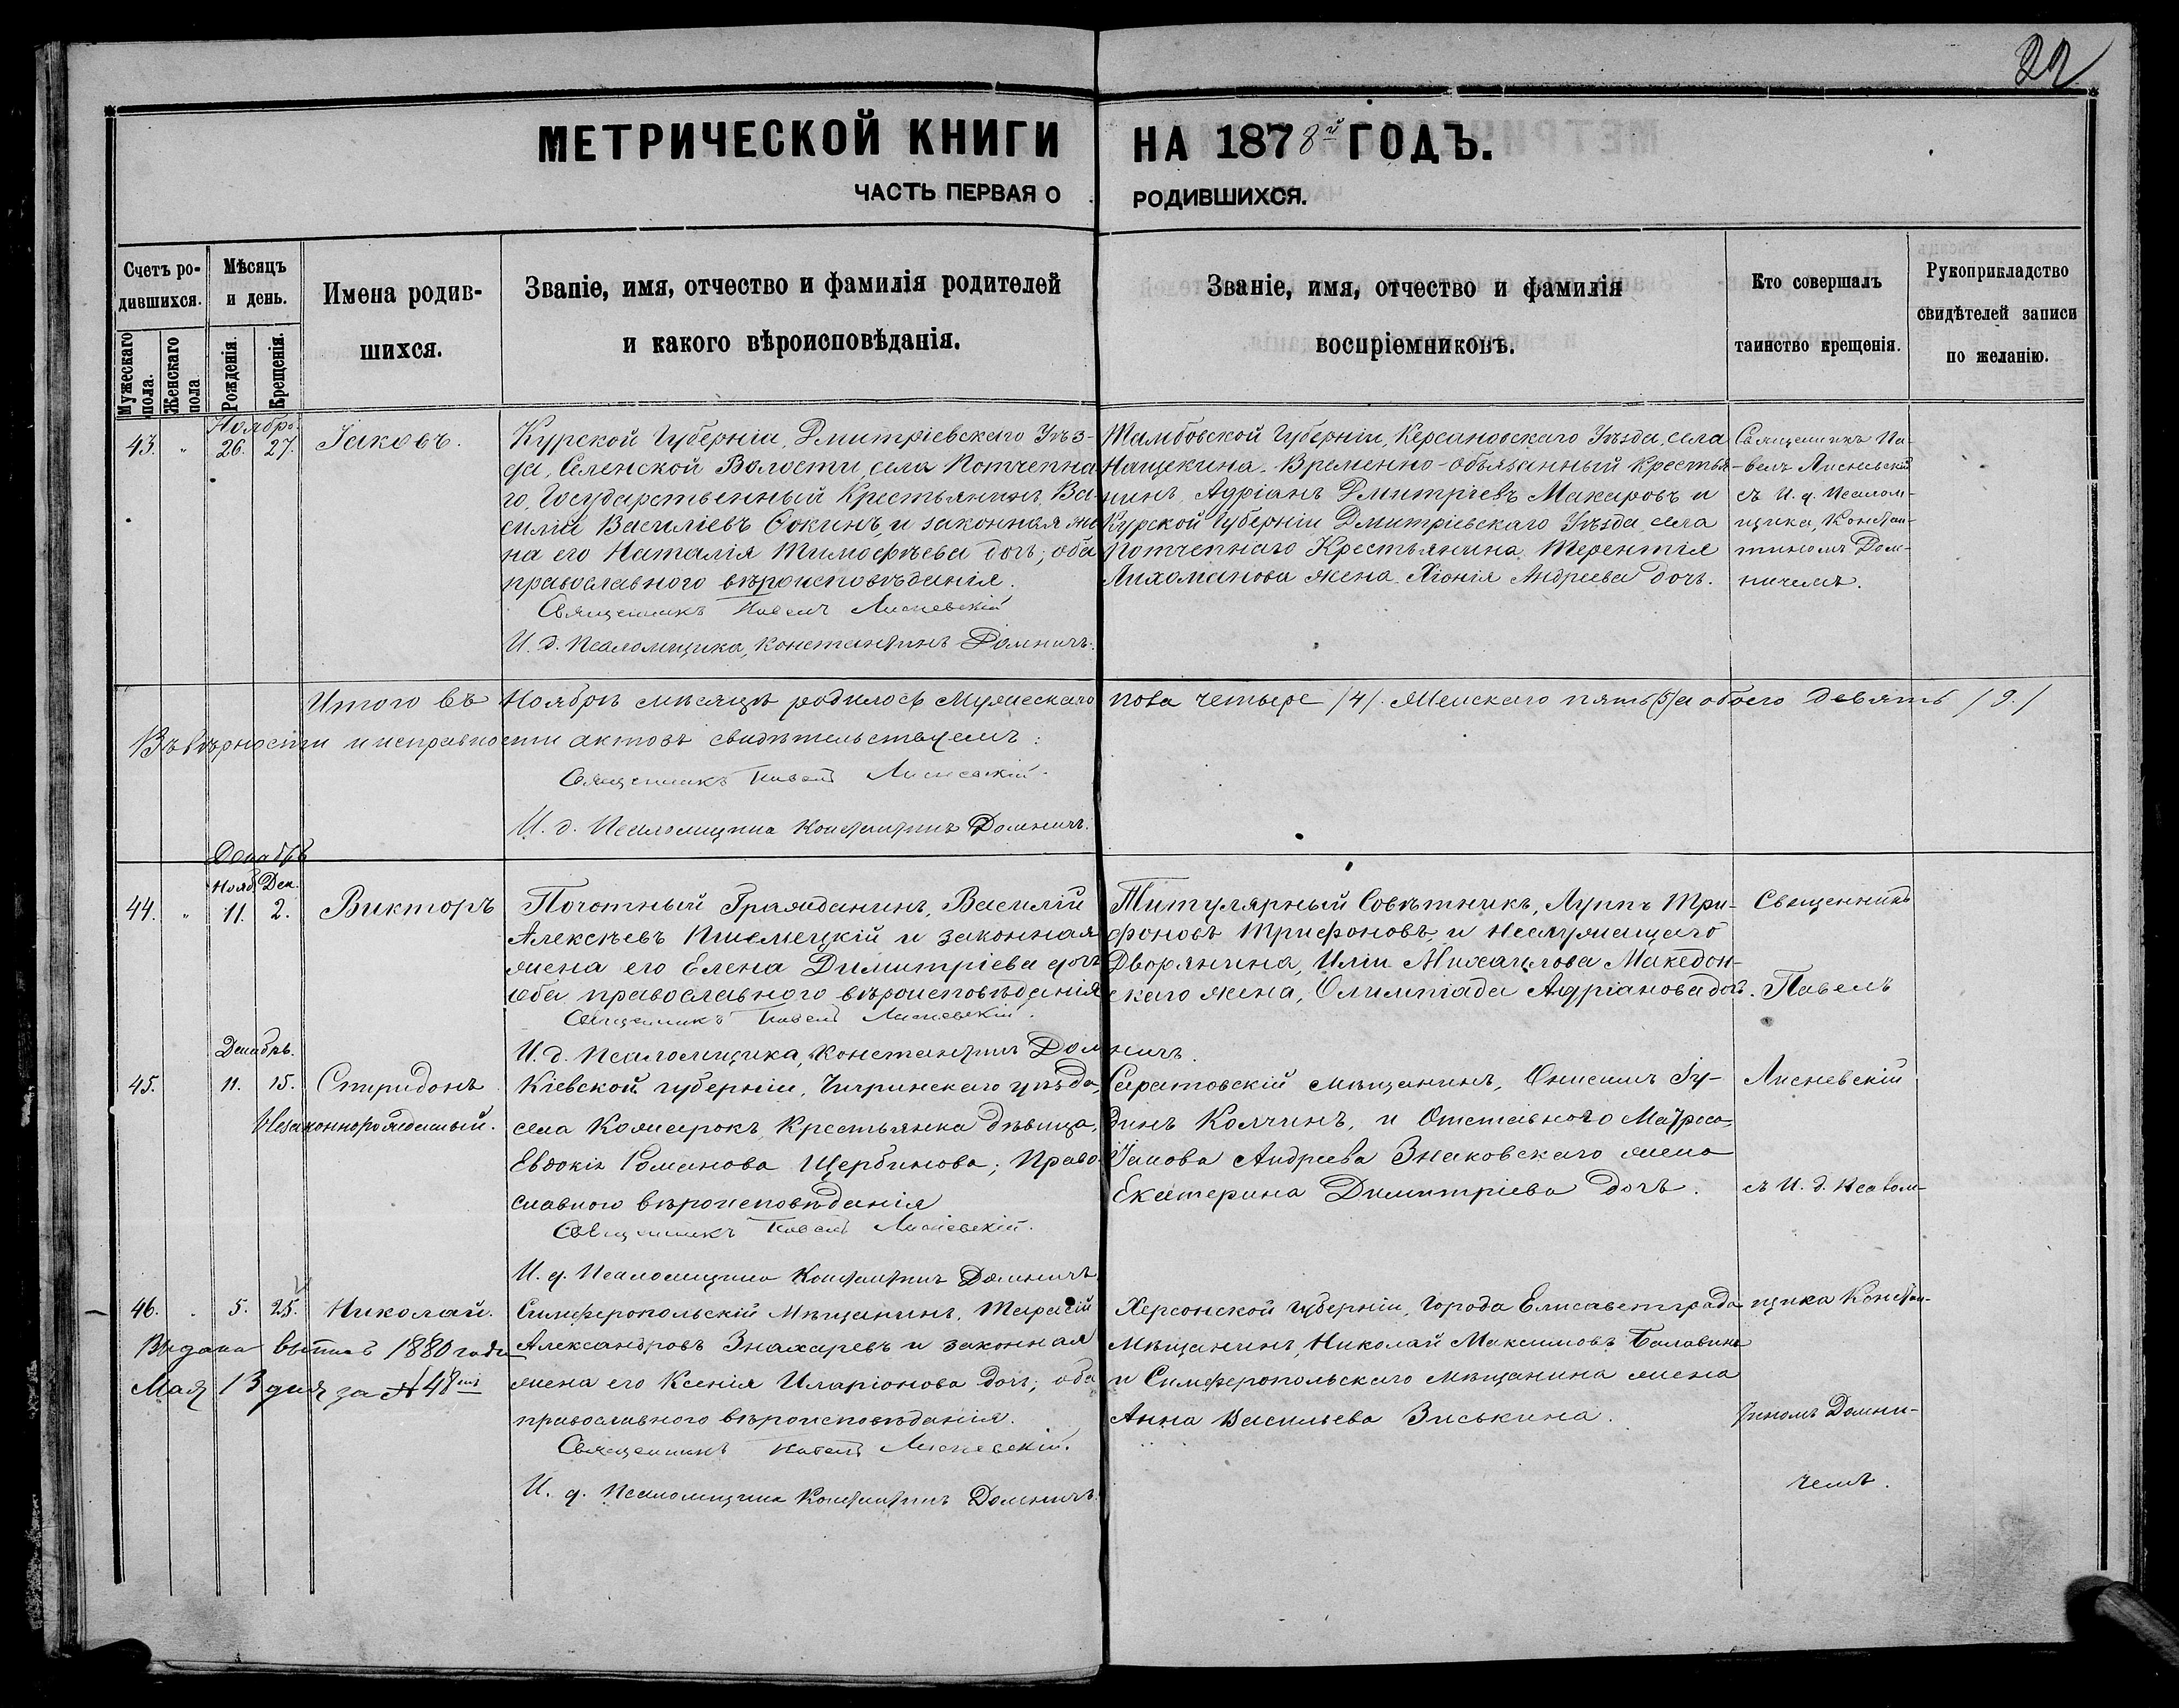 22
МЕТРИЧЕСКОЙ КНИГИ НА 1878й ГОДЪ.
ЧАСТЬ ПЕРВАЯ О РОДИВШИХСЯ.
Счетъ ро-
дившихся.
Мужескаго пола.
Женскаго пола
Мѣсяцъ
и день.
Рожденія.
Крещенія.
Имена родив-
шихся.
Званіе, имя, отчество и фамилія родителей
и какого вѣроисповѣданія.
Званіе, имя, отчество и фамилія
воспріемниковъ.
Кто совершалъ
таинство крещенія.
Рукоприкладство
свидѣтелей записи
по желанію.
Ноябрь.
43. " 26. 27. Іаковъ.
Курской Губерніи, Дмитріевскаго Уѣз-
да, Селенской Волости, села Потчепна-
го, Государственный Крестьянинъ, Ва-
силій Василіевъ и законная же-
на его Наталія Тимофѣева дочь; оба
православнаго вѣроисповѣданія.
Священникъ Павелъ Лисневскій
И. д. Псаломщика, Константинъ Домничъ.
Тамбовской Губерніи, Керсановскаго Уѣзда, села
Нащекина. Временно-обязанный Крестья-
нинъ, Адріанъ Дмитріевъ Макаровъ и
Курской Губерніи Дмитріевскаго Уѣзда, села
Потчепнаго Крестьянина Терентія
Лихоманова жена Хіонія Андреева дочь.
Священникъ Па-
велъ Лисневскій
съ И. д. Псалом-
щика, Констан-
тиномъ Дом-
ничемъ.
Итого въ Ноябрѣ мѣсяцѣ родилось Мужескаго пола четыре /4/. Женскаго пять /5/ а обоего девять /9./
Въ вѣрности и исправности актовъ свидѣтельствуемъ:
Священникъ Павелъ Лисневскій.
И. д. Псаломщика Константинъ Домничъ.
Декабрь
Нояб. Дек.
44. " 11. 2. Викторъ
Почотный Гражданинъ, Василій
Алексѣевъ и законная
жена его Елена Димитріева дочь
оба православного вѣроисповѣданія
Священникъ Павелъ Лисневскій.
И. д. Псаломщика, Константинъ Домничъ.
Титулярный Совѣтникъ, Луппъ Три-
фоновъ Трифоновъ, и Неслужащаго
Дворянина, Иліи Михаилова Македон-
скаго жена, Олимпіада Адріанова дочь.
Священникъ
Павелъ
Декабрь.
45. 11. 15. Спиридонъ
Незаконнорожденный.
Кіевской губерніи, Чигринскаго уѣзда,
села Крестьянка дѣвица,
Евдокія Романова Щербинова; Право-
славного вѣроисповѣданія
Священникъ Павелъ Лисневскій.
И. д. Псаломщика Константинъ Домничъ.
Саратовскій мѣщанинъ, Онисимъ Іу-
динъ Колчинъ, и Отставного Матроса
Іакова Андреева Знаковскаго жена
Екатерина Димитріева дочь.
Лисневскій
съ И. д. Псалом-
46. . 5. 25. Николай.
Выдана выпись 1880 года
Мая 13 дня за № 48мъ
Симферопольскій Мѣщанинъ, Тарасій
Александровъ Знахаревъ и законная
жена его Ксенія Иларіонова дочь; оба
православнаго вѣроисповѣданія.
Священникъ Павелъ Лисневскій.
И. д. Псаломщика Константинъ Домничъ.
Херсонской Губерніи, Города Елисаветграда
Мѣщанинъ, Николай Максимовъ Балавинъ
и Симферопольскаго мѣщанина жена
Анна Васильева Зиськина.
щика Констан-
тиномъ Домни-
чемъ.